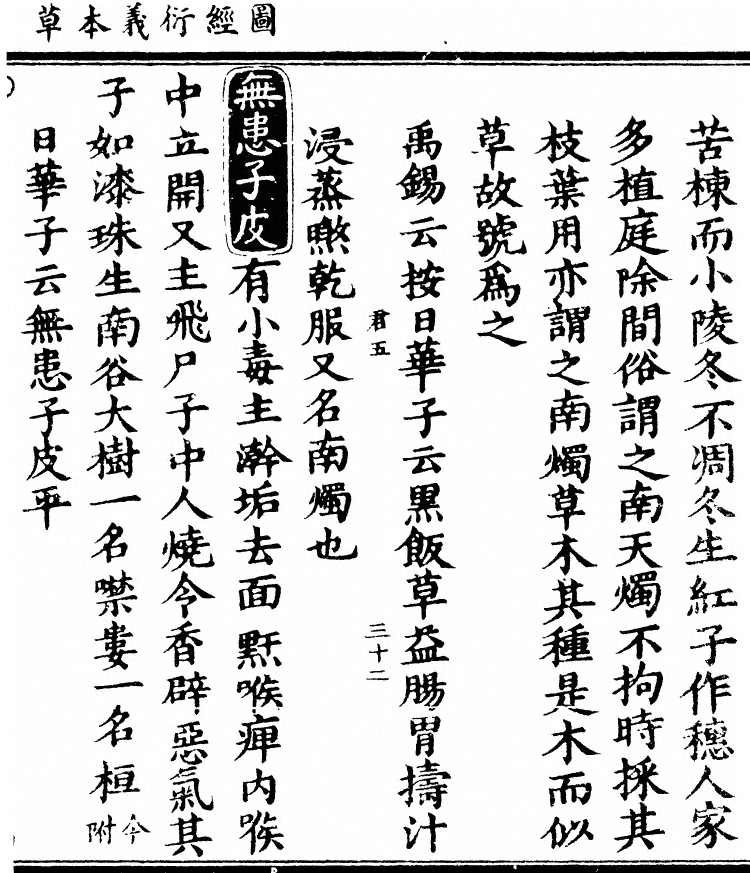 圖經衍義本草
苦楝而小陵冬不凋冬生紅子作穗人家
多植庭除間俗謂之南天燭不拘時採其
枝葉用亦謂之南燭草木其種是木而似
草故號爲之
禹錫云按日華子云黑飯草益腸胃擣汁
浸蒸㬠乾服又名南燭也
君五
三十二
無患子皮有小毒主澣垢去面䵟喉痺內喉
中立開又主飛尸子中人燒令香辟惡氣其
子如漆珠生南谷大樹一名噤婁一名桓今附
日華子云無患子皮平